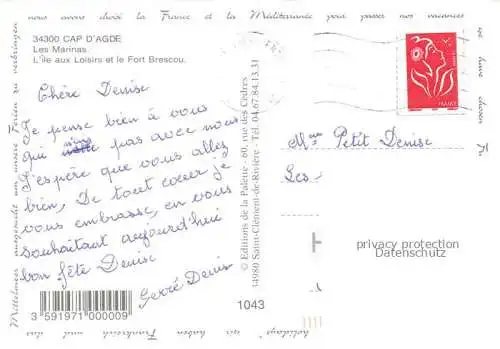 nous avons choisi la France et la Méditerranée pour passer nos vacances
34300 CAP D'AGDE
Les Marinas.
L'île aux Loisirs et le Fort Brescou.
Chère Denise
Je pense bien à vous
qui pas avec nous
J'espère que vous allez
bien, De tout coeur je
vous embrasse, en vous
souhaitant aujourd'hui
bon fête Denise
Denis
3 591971 000009
1043
© Editions de la Palette - 60, rue des Cèdres
34980 Saint-Clément-de-Rivière - Tél. 04.67.84.13.31
FRANCE
Mme Petit Denise
Les
privacy protection
Datenschutz
Mittelmeer ausgesucht um unsere Ferien zu verbringen
holidays" wir haben Frankreich und das